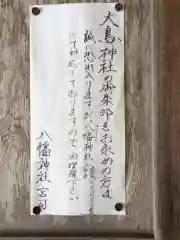 大鳥神社の御朱印をお求めの方は
誠に恐れ入りますが八幡神社
にて対応しておりますので御理解下さい
八幡神社宮司